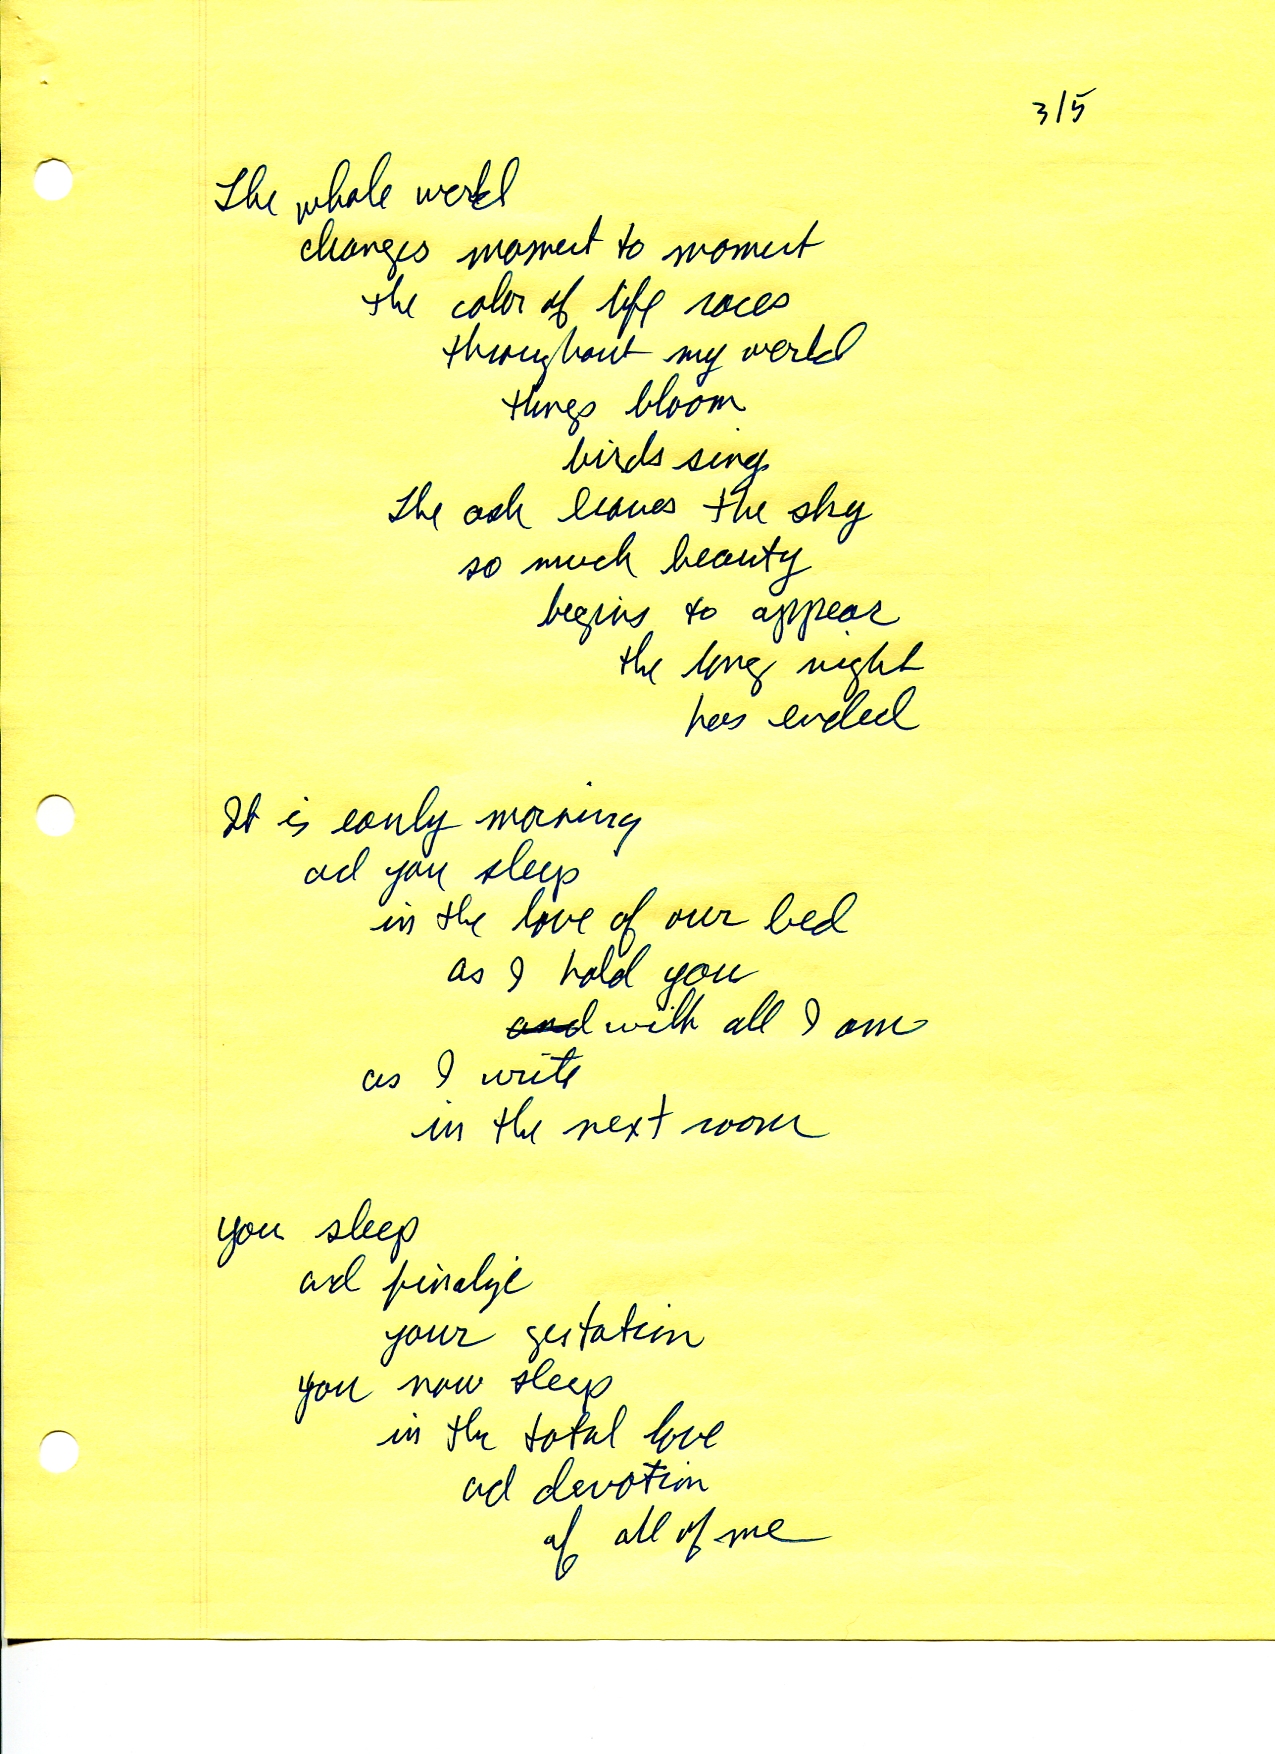 3/5
The whole world
changes moment to moment
the color of life races
throughout my world
things bloom
birds sing
the ash leaves the sky
so much beauty
begins to appear
the long night
has ended
It is early morning
and you sleep
in the love of our bed
as I hold you
and with all I am
as I write
in the next room
you sleep
and finalize
your gestation
you now sleep
in the total love
and devotion
of all of me